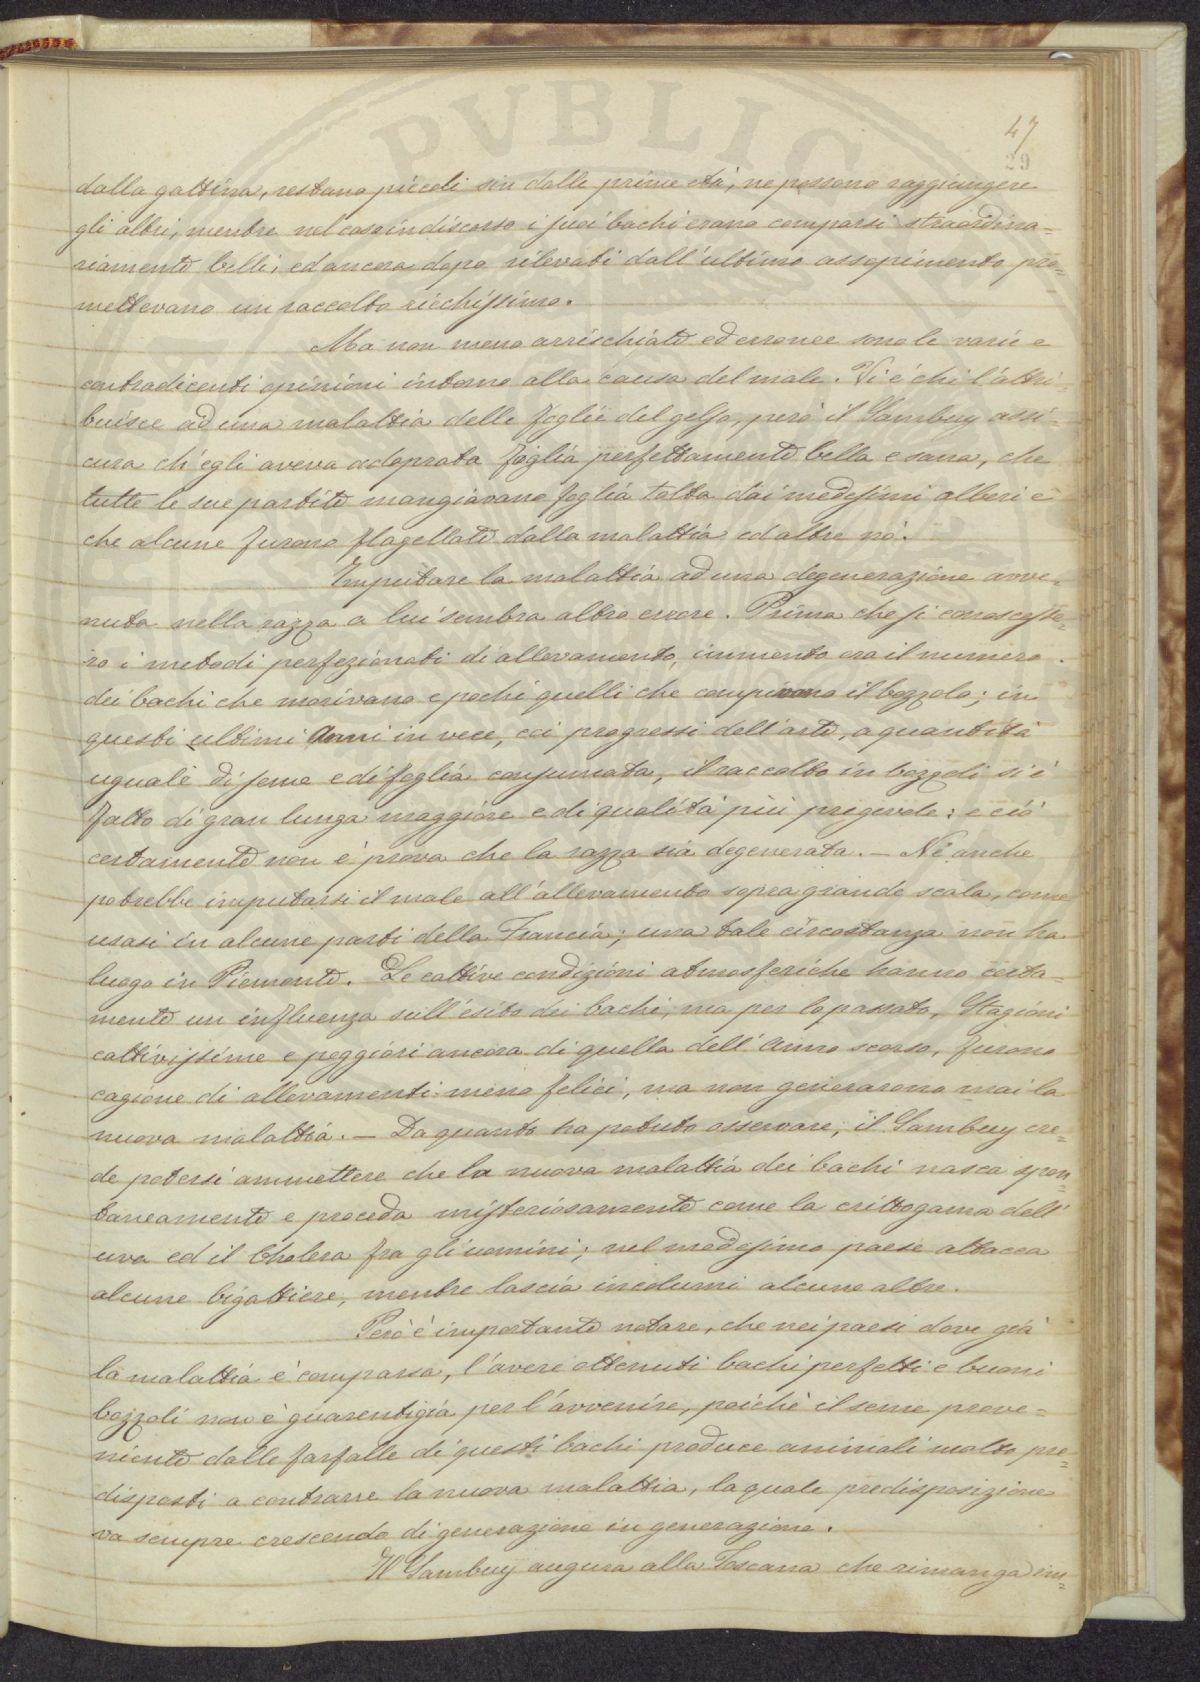 PVBLIC
47
29
dalla gattina, restano piccoli sin dalle prime età, ne possono raggiungere
gli altri, mentre nel caso in discorso i suoi bachi erano comparsi straordina=
riamente belli, ed ancora dopo rilevati dall'ultimo assopimento pro=
mettevano un raccolto ricchissimo.
Ma non meno arrischiate ed erronee sono le varie e
contradicenti opinioni intorno alla causa del male. Vi è chi l'attri=
buisce ad una malattia delle foglie del gelso, però il Sambuy assi=
cura ch'egli aveva adoprata foglia perfettamente bella e sana, che
tutte le sue partite mangiavano foglia tolta dai medesimi alberi e
che alcune furono flagellate dalla malattia ed altre nò.
Imputare la malattia ad una degenerazione avve=
nuta nella razza a lui sembra altro errore. Prima che si conoscesse=
ro i metodi perfezionati di allevamento, immento era il numero
dei bachi che morivano e pochi quelli che compivano il bozzolo; in
questi ultimi anni in vece, coi progressi dell'arte, a quantità
uguale di seme e di foglia consumata, il raccolto in bozzoli si è
fatto di gran lunga maggiore e di qualità più pregevole: e ciò
certamente non è prova che la razza sia degenerata. — Nè anche
potrebbe imputarsi il male all'allevamento sopra grande scala, come
usasi in alcune parti della Francia; una tale circostanza non ha
luogo in Piemonte. Le cattive condizioni atmosferiche hanno certa=
mente un influenza sull'esito dei bachi, ma per lo passato, Stagioni
cattivissime e peggiori ancora di quella dell'anno scorso, furono
cagione di allevamenti meno felici, ma non generarono mai la
nuova malattia. — Da quanto ha potuto osservare, il Sambuy cre=
de potersi ammettere che la nuova malattia dei bachi nasca spon=
taneamente e proceda misteriosamente come la crittogama dell'
uva ed il Cholera fra gli uomini; nel medesimo paese attacca
alcune bigattiere, mentre lascia incolumi alcune altre.
Però è importante notare, che nei paesi dove già
la malattia è comparsa, l'avere ottenuti bachi perfetti e buoni
bozzoli non è guarentigia per l'avvenire, poichè il seme prove=
niente dalle farfalle di questi bachi produce animali molto pre=
disposti a contrarre la nuova malattia, la quale predisposizione
va sempre crescendo di generazione in generazione.
Il Sambuy augura alla Toscana che rimanga im=